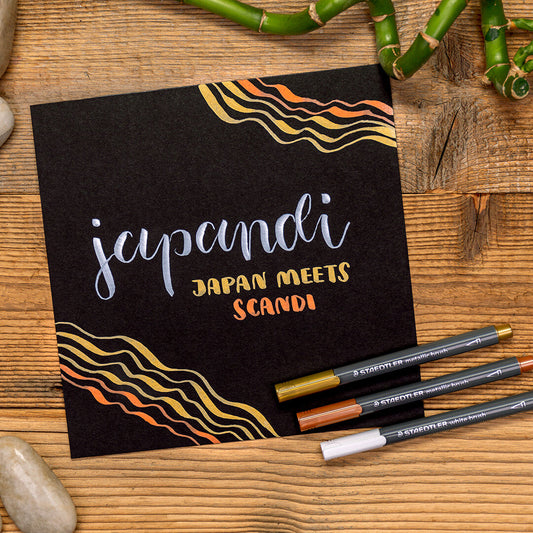 japandi
JAPAN MEETS
SCANDI
STAEDTLER metallic brush
STAEDTLER metallic brush
STAEDTLER white brush